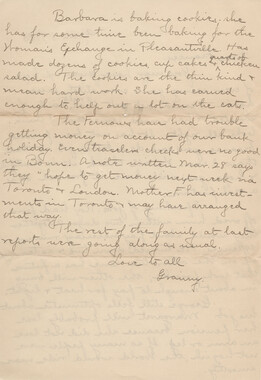 Barbara is baking cookies. She
has for some time been baking for the
Woman's Exchange in Pleasantville. Has
made dozens of cookies, cup cakes & quarts of chicken
salad. The cookies are the thin kind &
mean hard work. She has earned
enough to help out a lot on the eats.
The Fernows have had trouble
getting money on account of our bank
holiday. Even travelers checks were no good
in Bonn. A note written Mar. 28 says
they "hope to get money next week via
Toronto & London. Mother F. has invest-
ments in Toronto & may have arranged
that way.
The rest of the family at last
reports were going along as usual
Love to all
Granny.